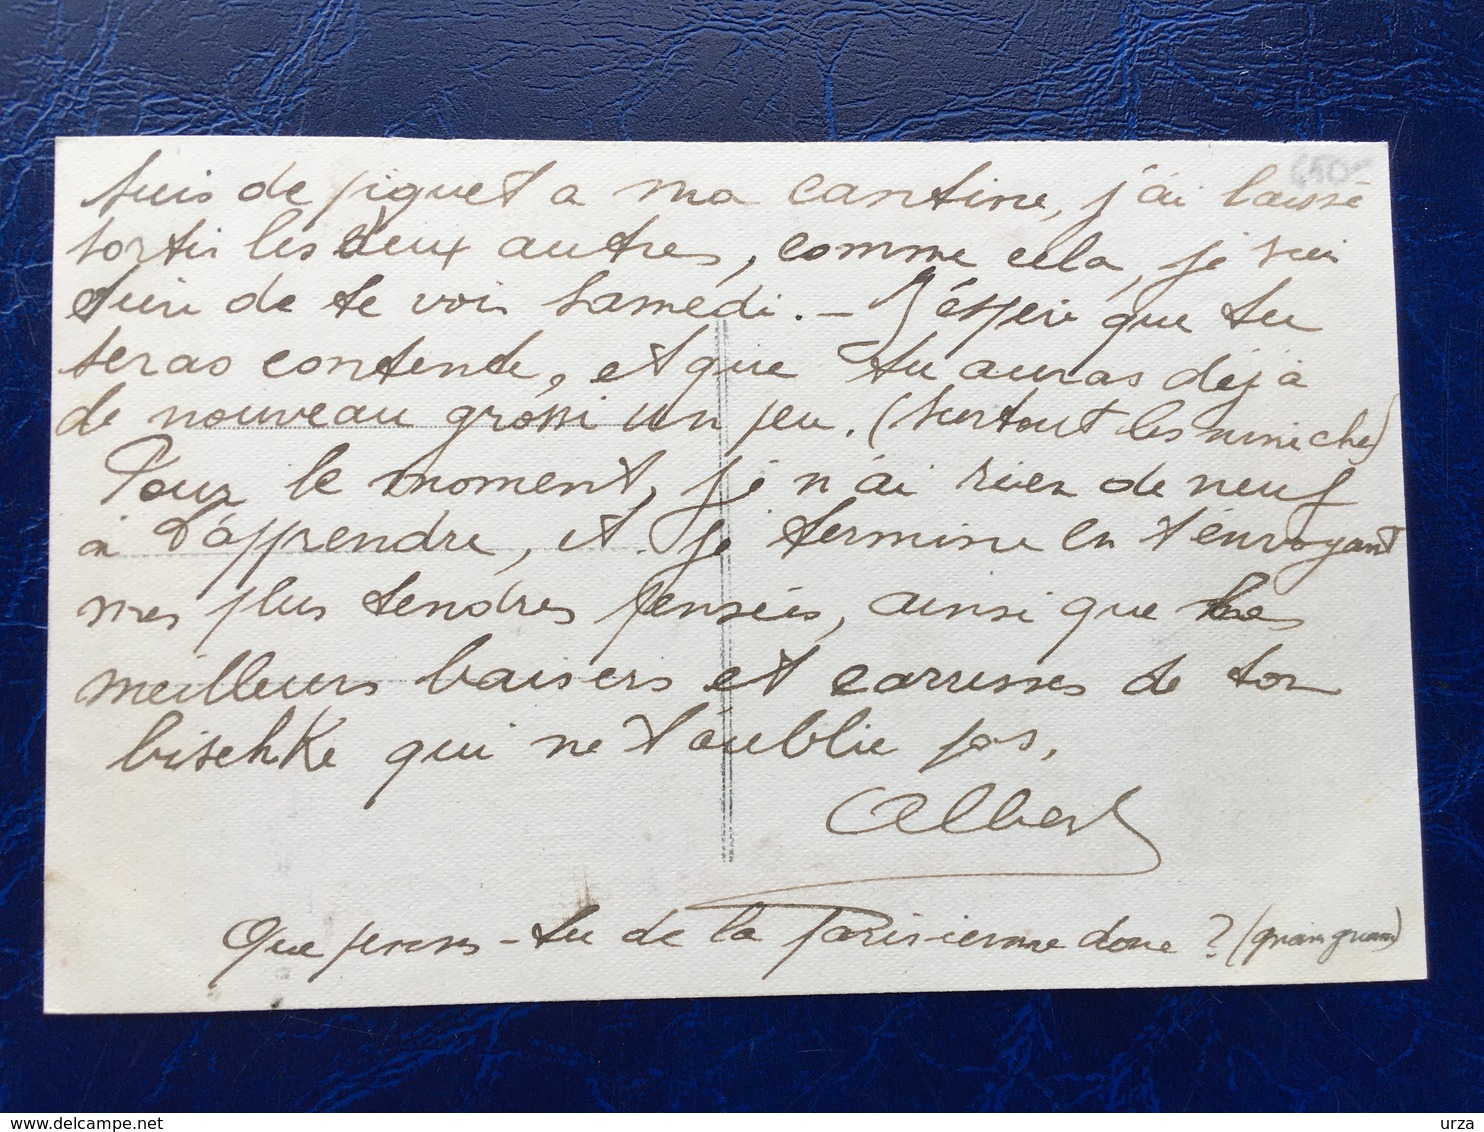 650-
suis de piquet a ma cantine, j'ai laissé
sortir les deux autres, comme cela, je suis
sure de te voir samedi. - J'éspère que tu
seras contente, et que tu auras déjà
de nouveau grossi un peu. (surtout les miniche)
Pour le moment, je n'ai rien de neuf
à t'apprendre, et je termine en t'envoyant
mes plus tendres pensées, ainsi que les
meilleurs baisers et carresses de ton
bischke qui ne t'oublie pas.
Albert
Que penses-tu de la Parisienne donc ? (
delcampe.net
urza